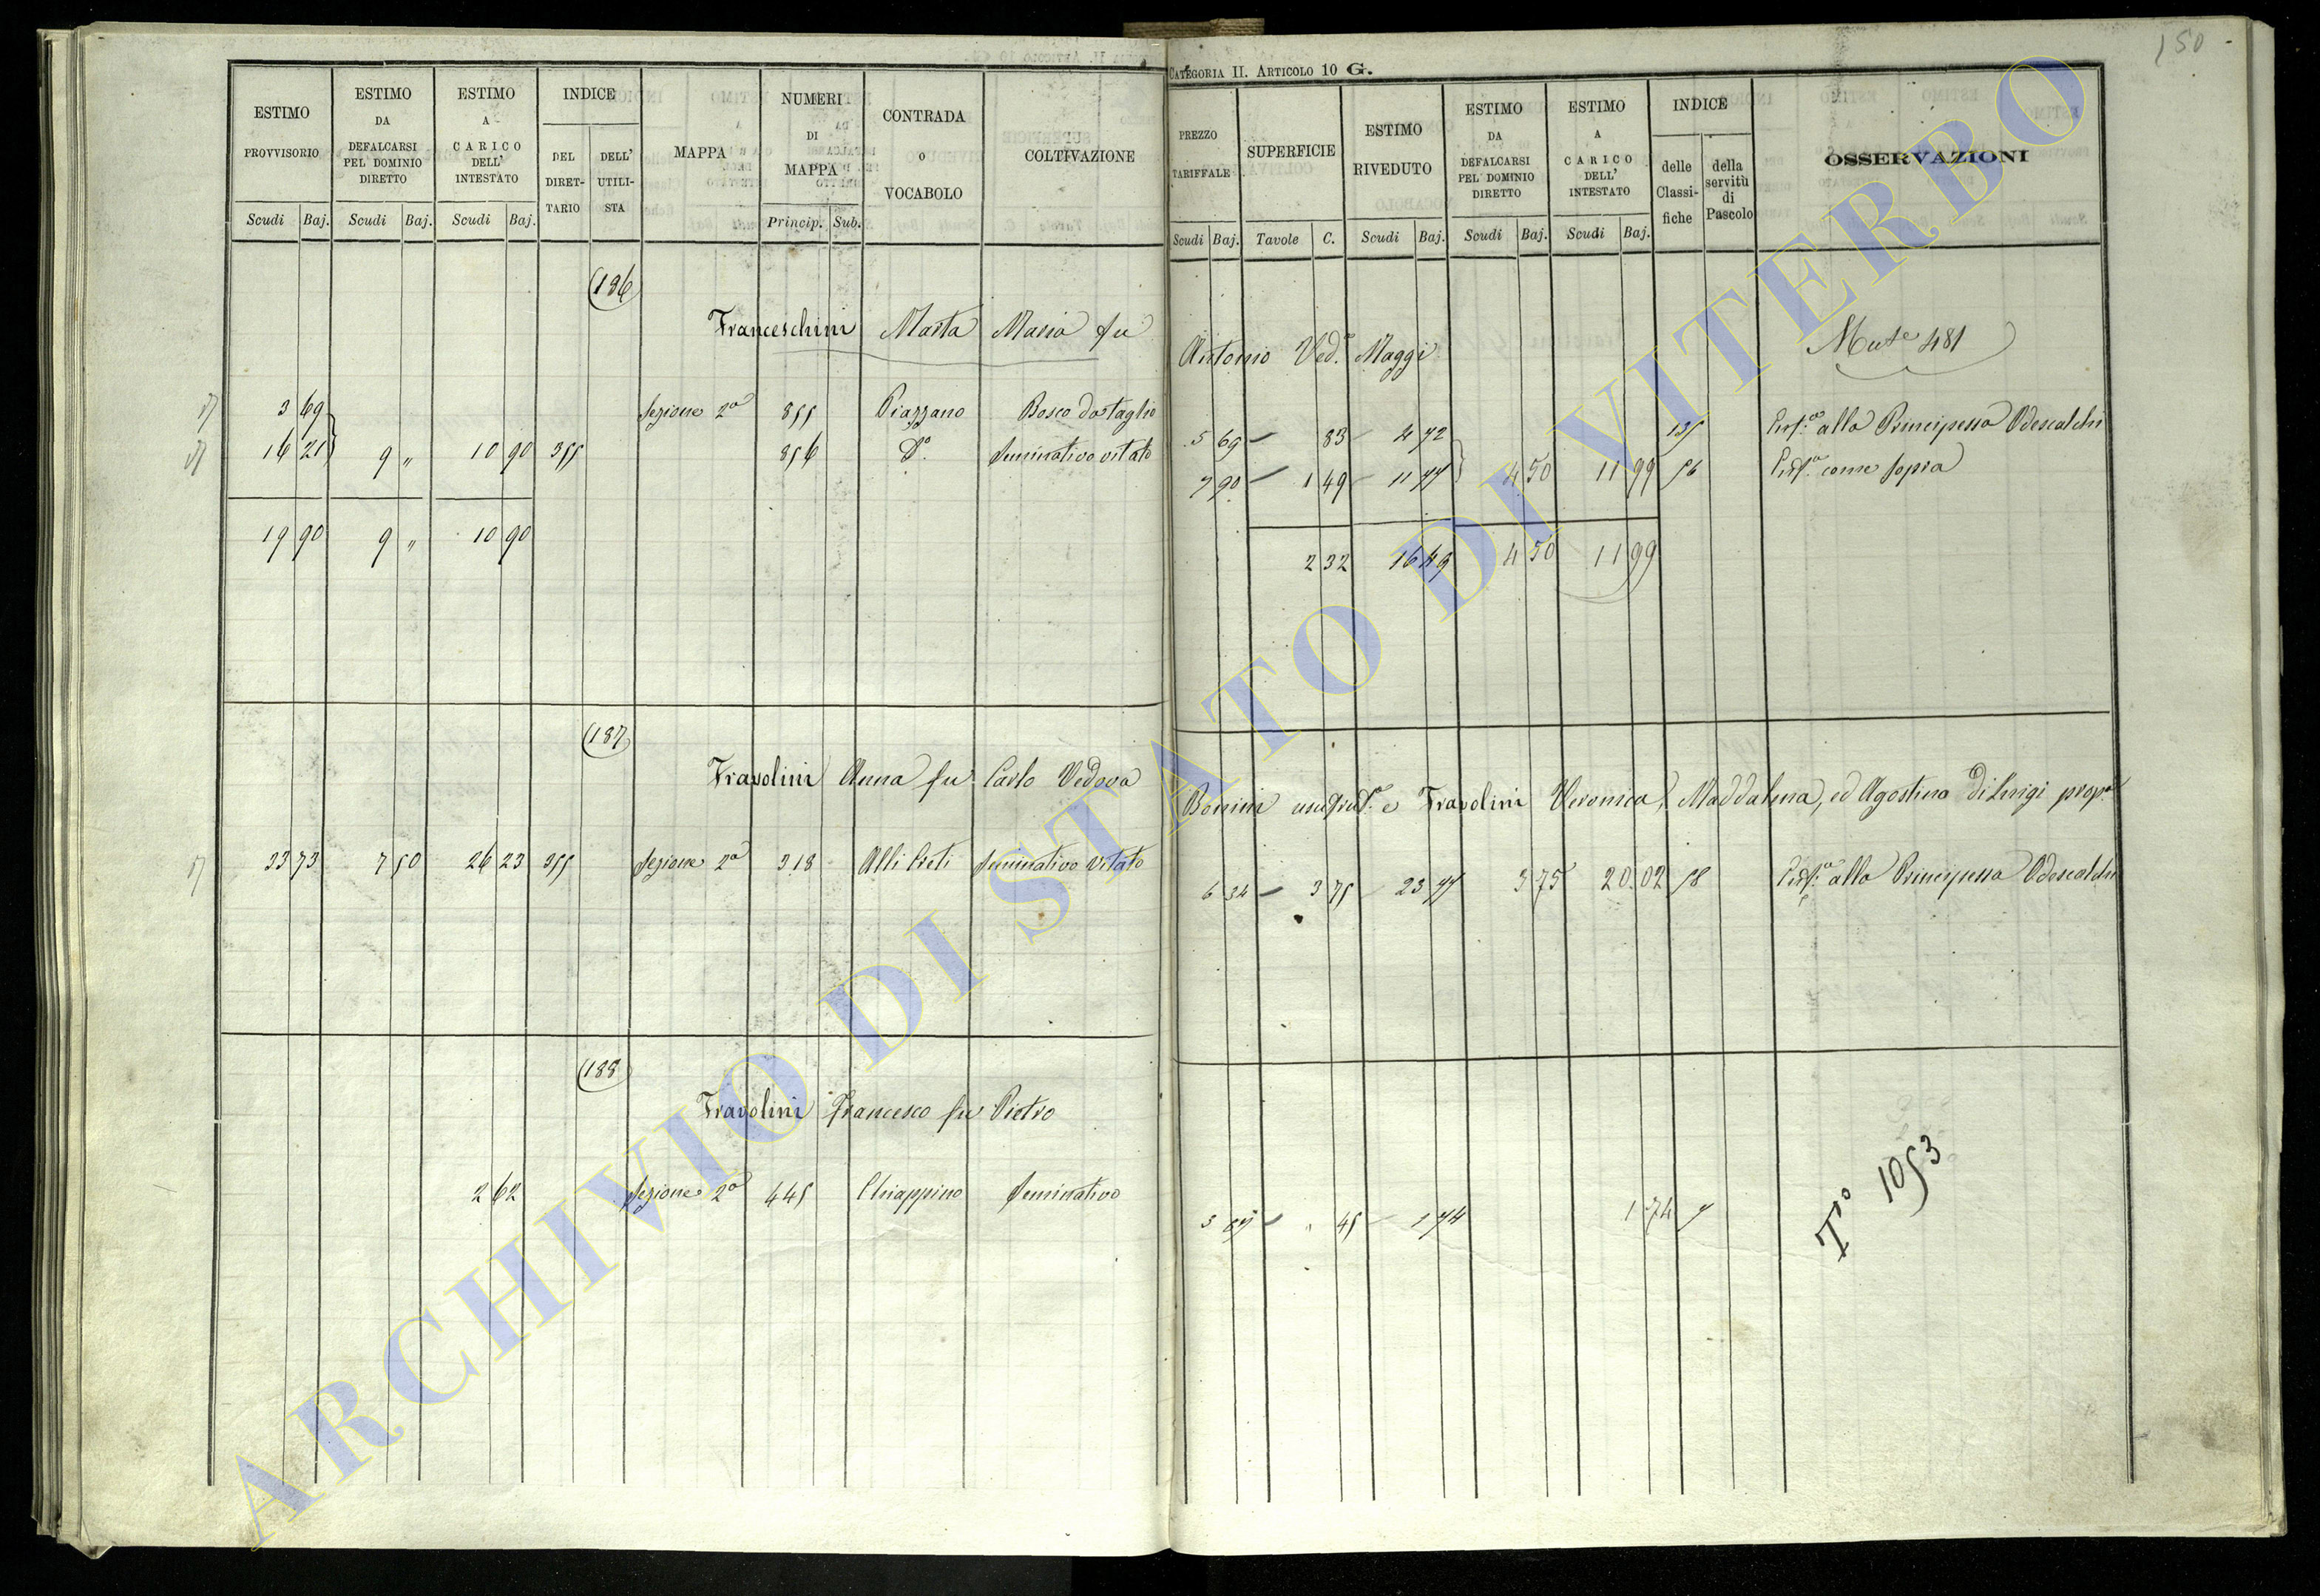 150
CATEGORIA II. ARTICOLO 10 G.
ESTIMO PROVVISORIO Scudi Baj.
ESTIMO DA DEFALCARSI PEL DOMINIO DIRETTO Scudi Baj.
ESTIMO A CARICO DELL' INTESTATO Scudi Baj.
INDICE DEL DIRETTARIO DELL' UTILISTA
MAPPA
NUMERI DI MAPPA Princip. Sub.
CONTRADA O VOCABOLO
COLTIVAZIONE
PREZZO TARIFFALE Scudi Baj.
SUPERFICIE Tavole C.
ESTIMO RIVEDUTO Scudi Baj.
ESTIMO DA DEFALCARSI PEL DOMINIO DIRETTO Scudi Baj.
ESTIMO A CARICO DELL' INTESTATO Scudi Baj.
INDICE delle Classifiche della servitù di Pascolo
OSSERVAZIONI
186
Franceschini Marta Maria fu Antonio Ved.a Maggi
Mut.e 481
3 69 Sezione 2a 855 Piazzano Bosco da taglio 5 69 83 4 72 135 alla Principessa Odescalchi
16 21 9 " 10 90 355 856 D.o Seminativo vitato 7 90 1 49 11 77 4 50 11 99 56 come sopra
19 90 9 " 10 90 2 32 16 49 4 50 11 99
187
Fravolini Anna fu Carlo Vedova Bonini usufrut.a e Fravolini Veronica, Maddalena, ed Agostina di Luigi prop.e
33 73 7 50 26 23 355 Sezione 2a 318 Alli Preti Seminativo vitato 6 34 3 75 23 77 3 75 20 02 58 alla Principessa Odescalchi
188
Fravolini Francesco fu Pietro
2 62 Sezione 2a 445 Chiappino Seminativo 3 87 " 45 1 74 1 74 7
T.o 1053
ARCHIVIO DI STATO DI VITERBO